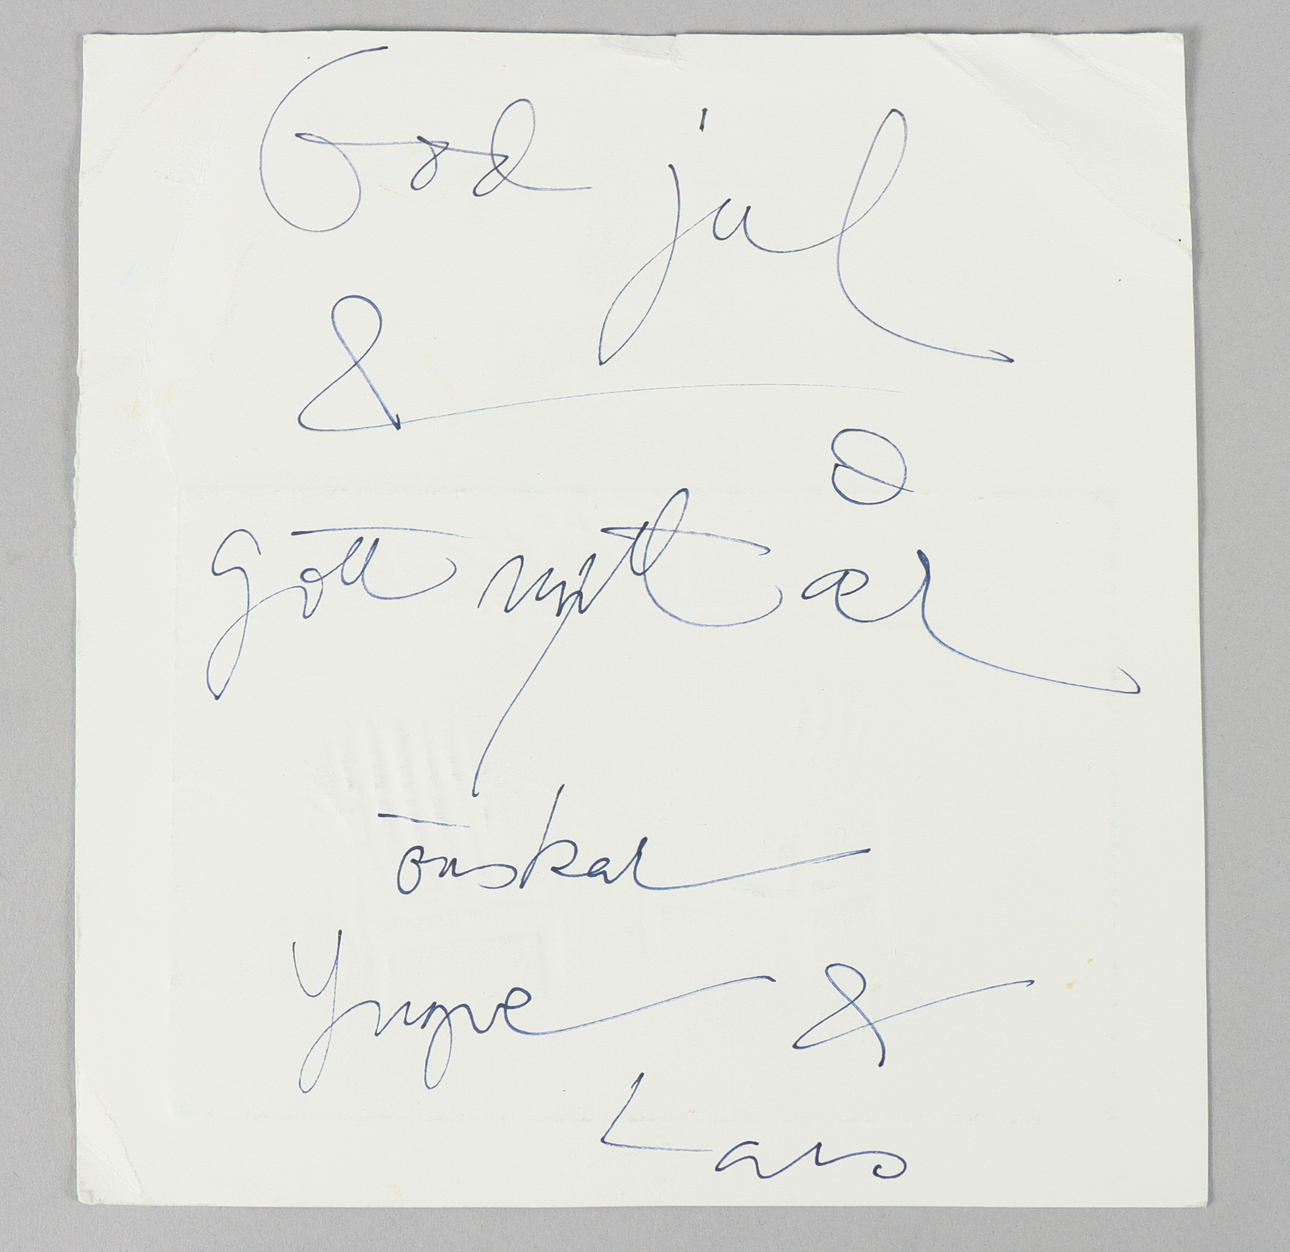 God jul
&
gott nytt år
önskar
Yngve &
Lars